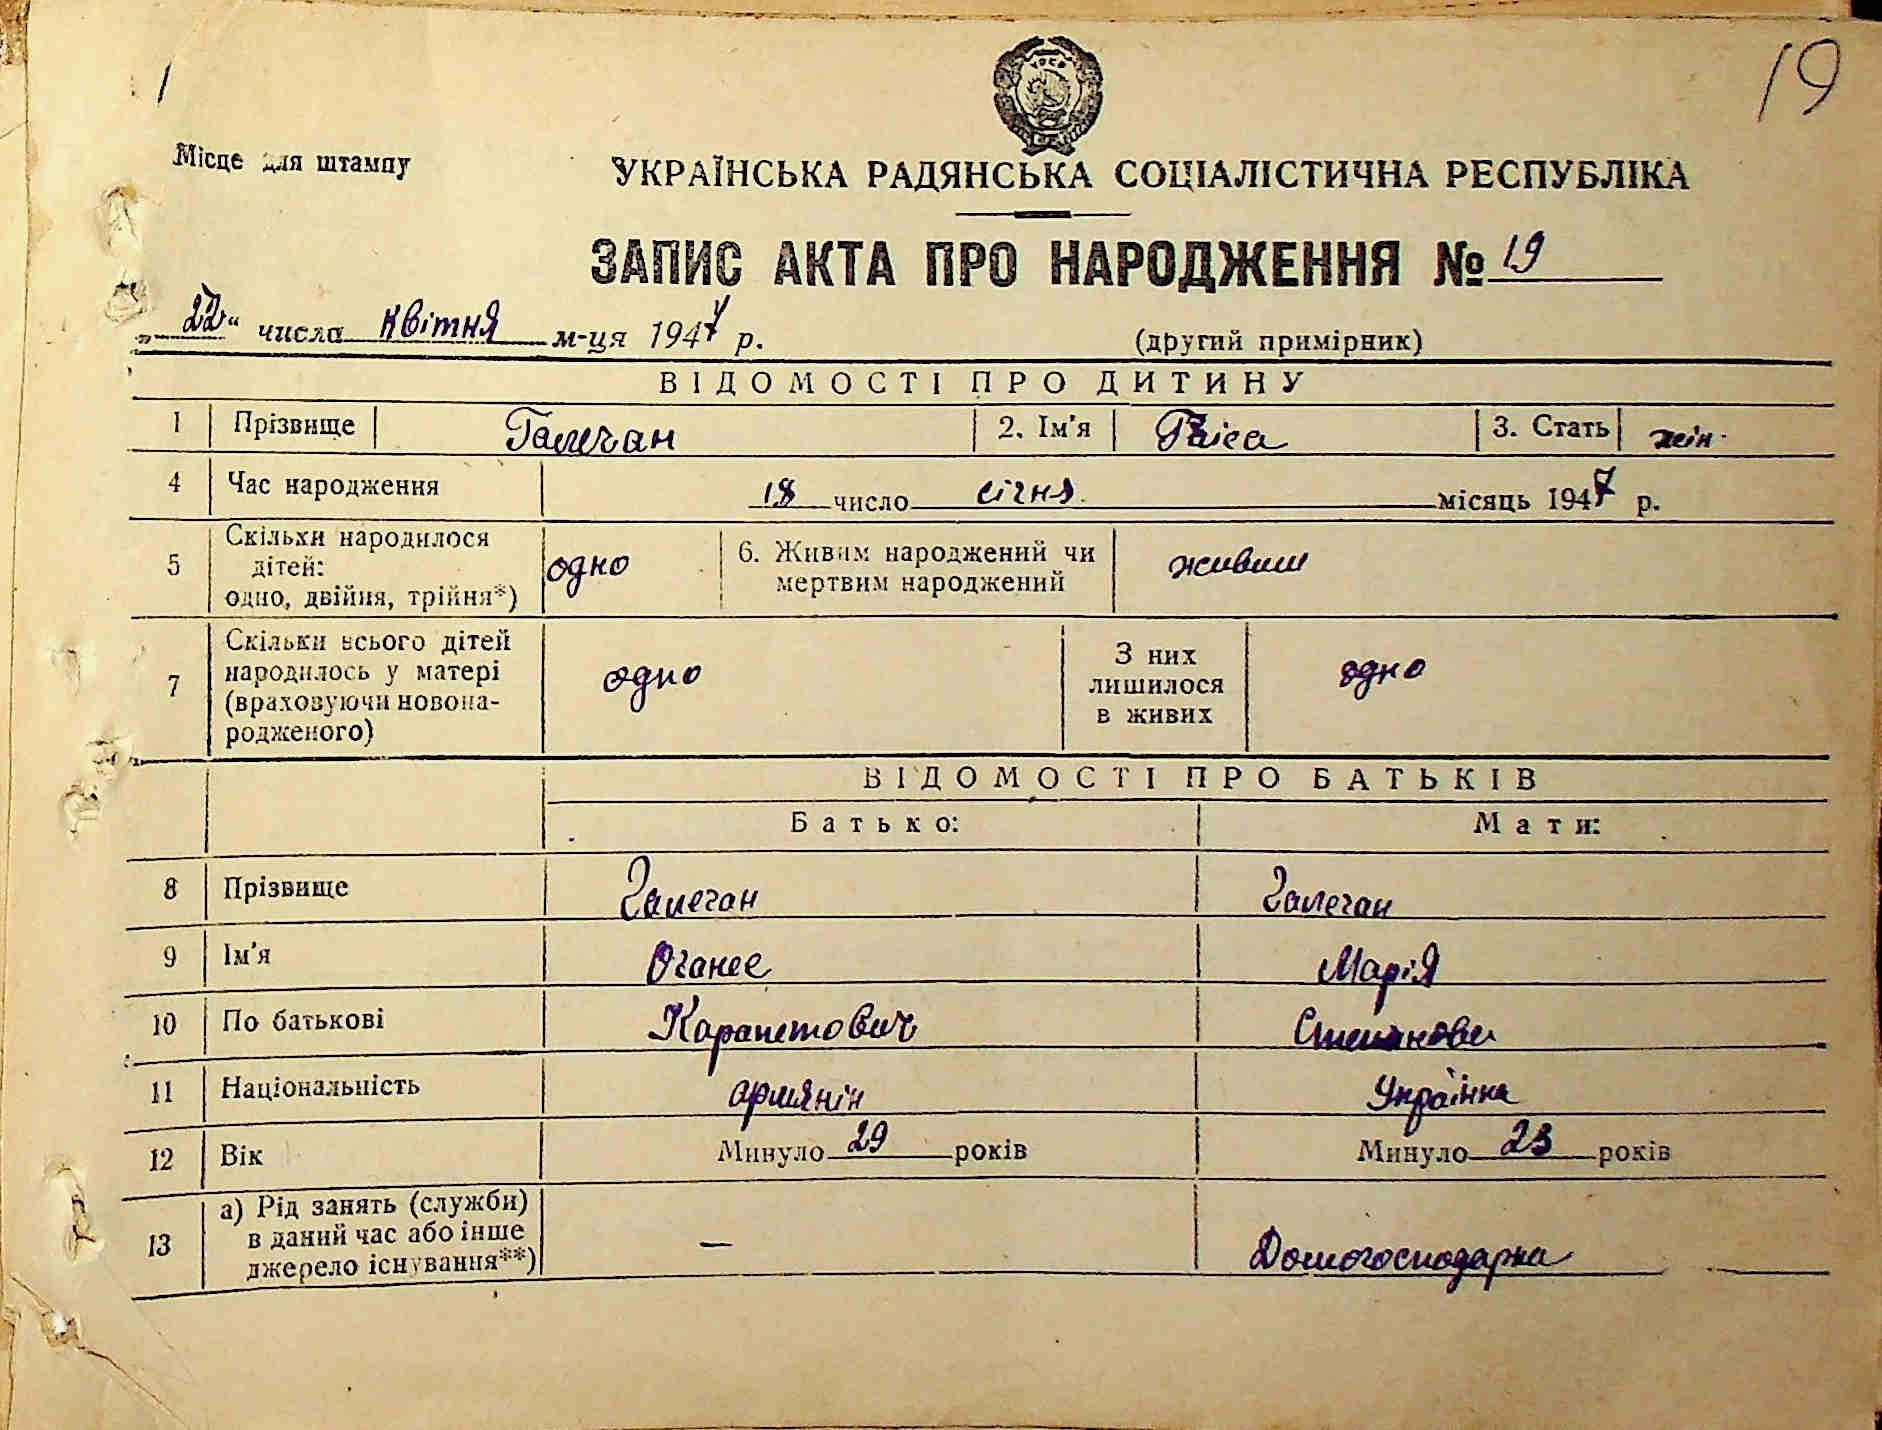 19
Місце для штампу
УКРАЇНСЬКА РАДЯНСЬКА СОЦІАЛІСТИЧНА РЕСПУБЛІКА
ЗАПИС АКТА ПРО НАРОДЖЕННЯ № 19
„22“ числа квітня м-ця 1947 р. (другий примірник)
ВІДОМОСТІ ПРО ДИТИНУ
1 Прізвище Галечан 2. Ім'я Раіса 3. Стать жін.
4 Час народження 18 число січня місяць 1947 р.
5 Скільки народилося дітей: одно, двійня, трійня*) одно 6. Живим народжений чи мертвим народжений живим
7 Скільки всього дітей народилось у матері (враховуючи новонародженого) одно З них лишилося в живих одно
ВІДОМОСТІ ПРО БАТЬКІВ
Батько: Мати:
8 Прізвище Галечан Галечан
9 Ім'я Оганес Марія
10 По батькові Карапетович
11 Національність армянін Українка
12 Вік Минуло 29 років Минуло 23 років
13 а) Рід занять (служби) в даний час або інше джерело існування**) — Домогосподарка